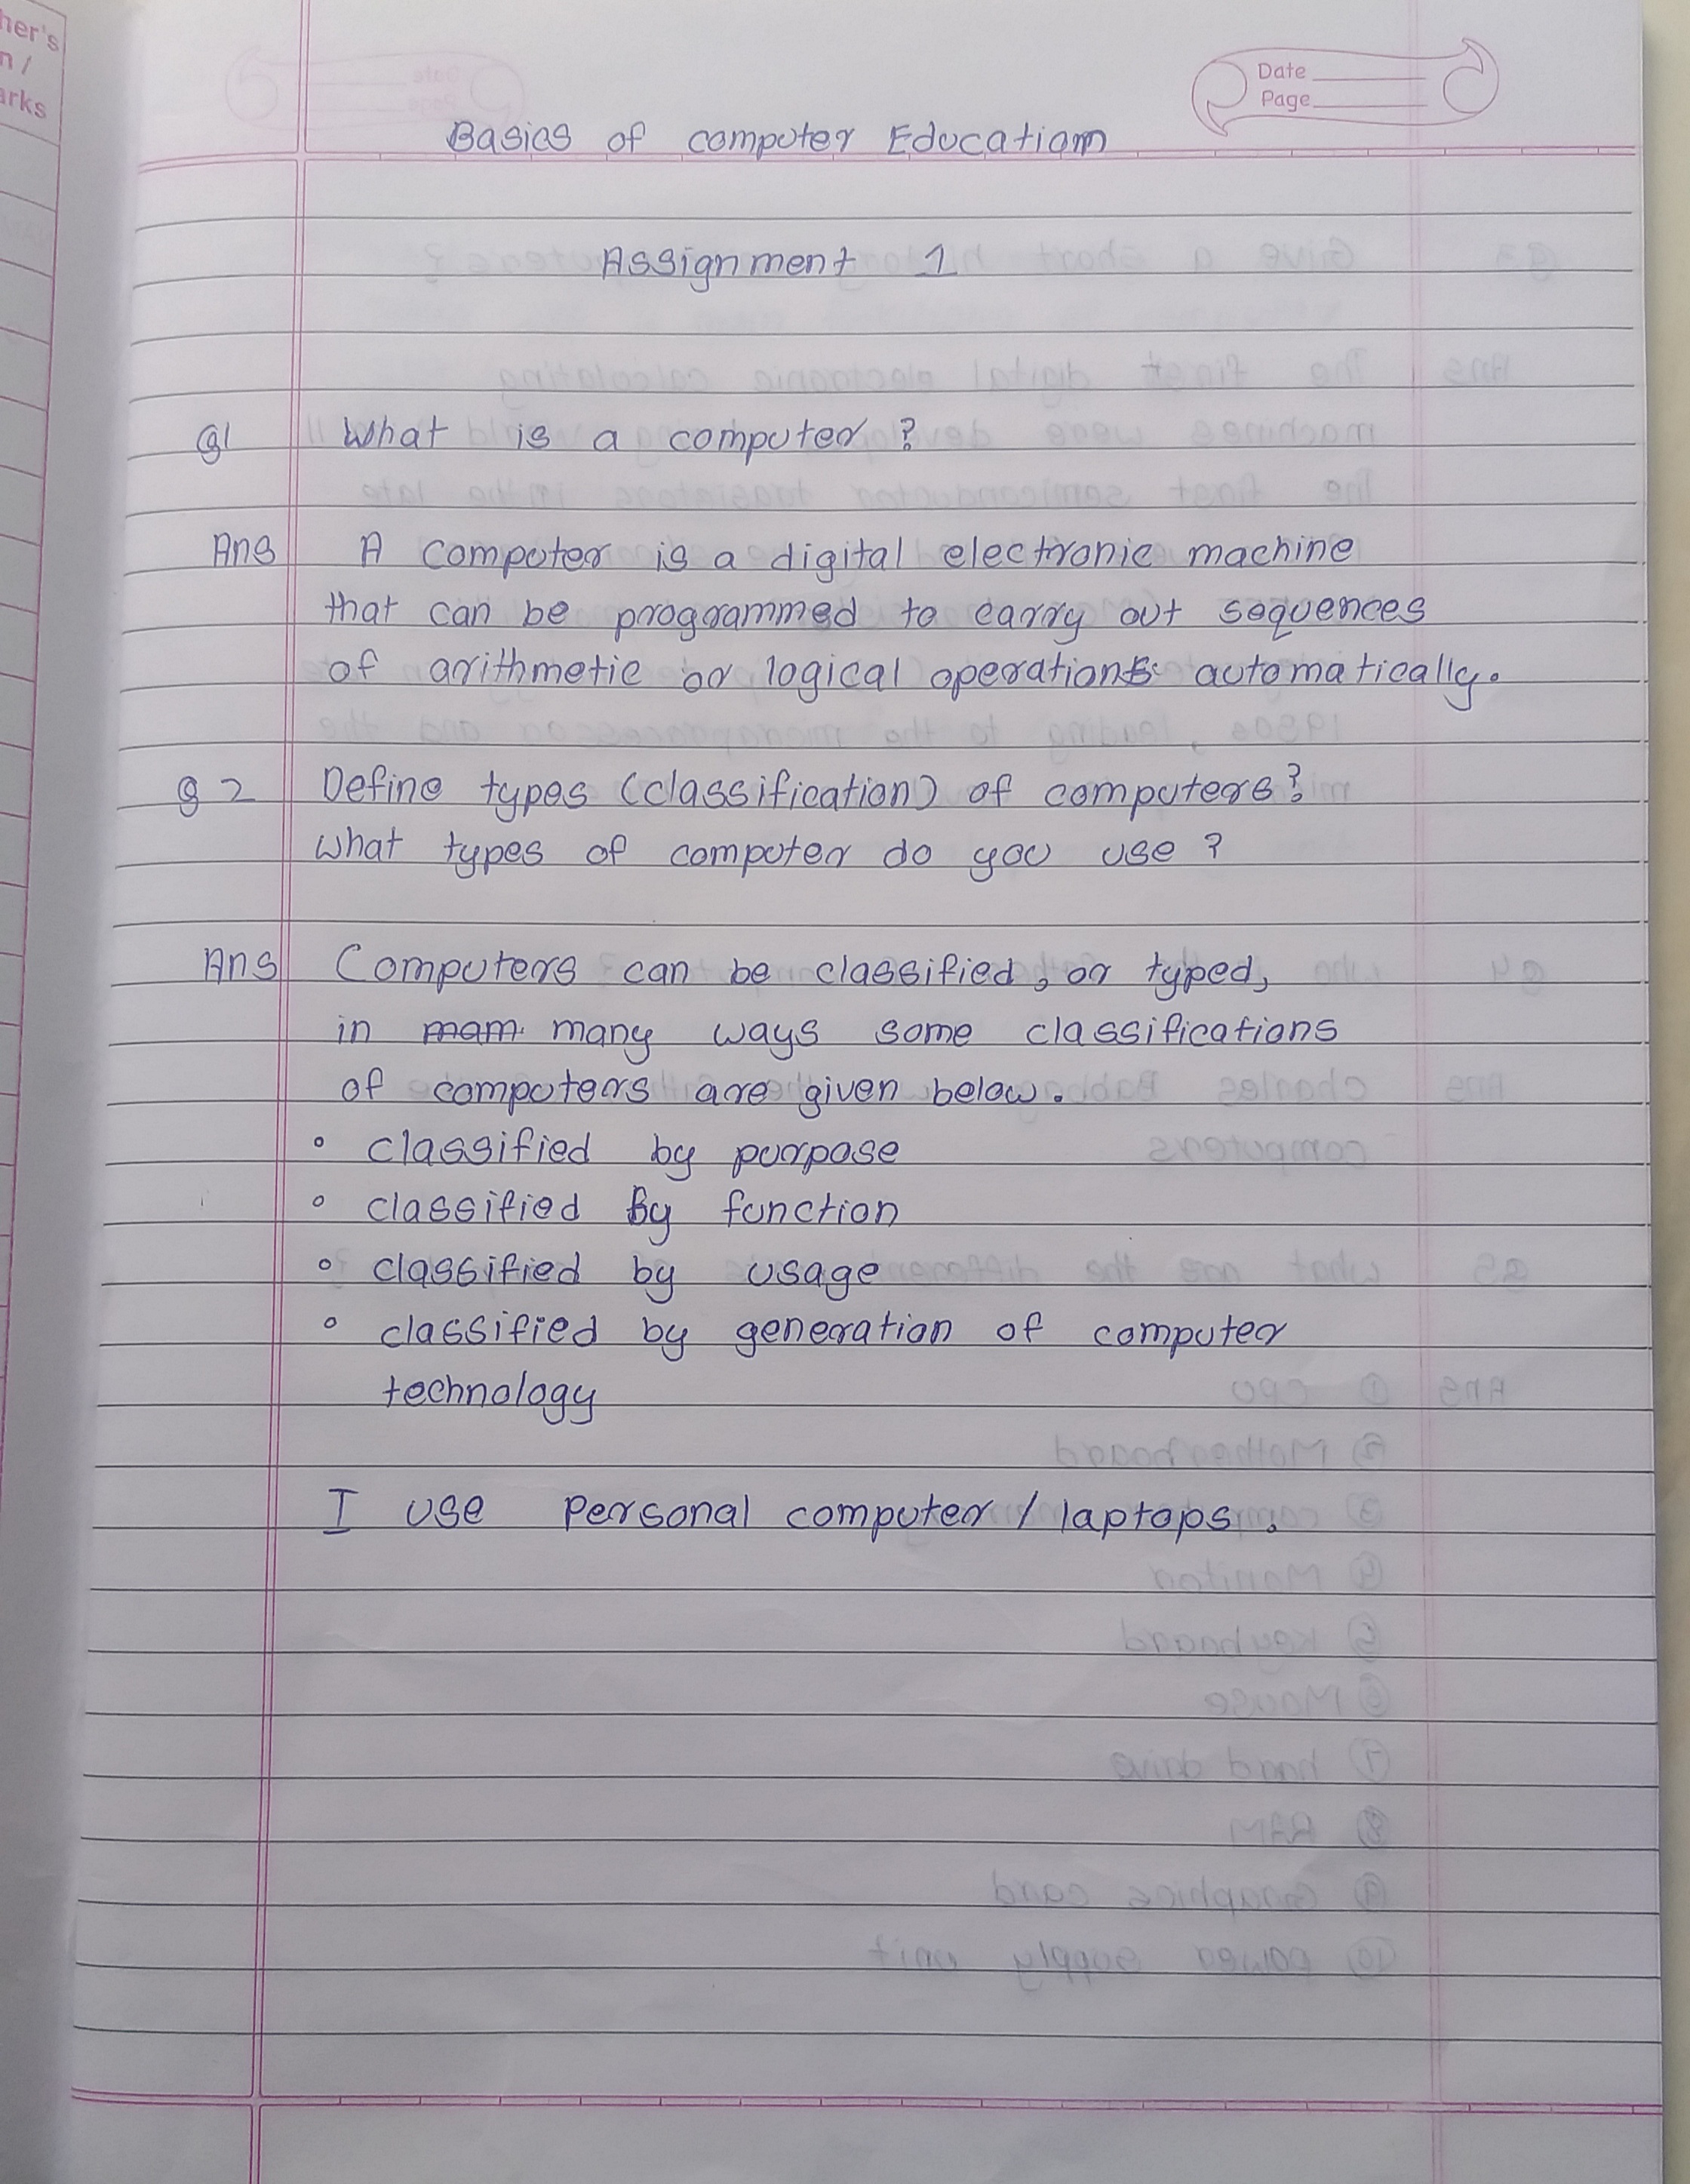 her's
n /
arks
Date
Page
Basics of computer Education
Assignment 1
Q1 What is a computer ?
Ans A computer is a digital electronic machine
that can be programmed to carry out sequences
of arithmetic or logical operations automatically.
Q 2 Define types (classification) of computers?
what types of computer do you use ?
Ans Computers can be classified, or typed,
in mam many ways some classifications
of computers are given below.
° classified by purpose
° classified By function
° classified by usage
° classified by generation of computer
technology
I use personal computer / laptops.